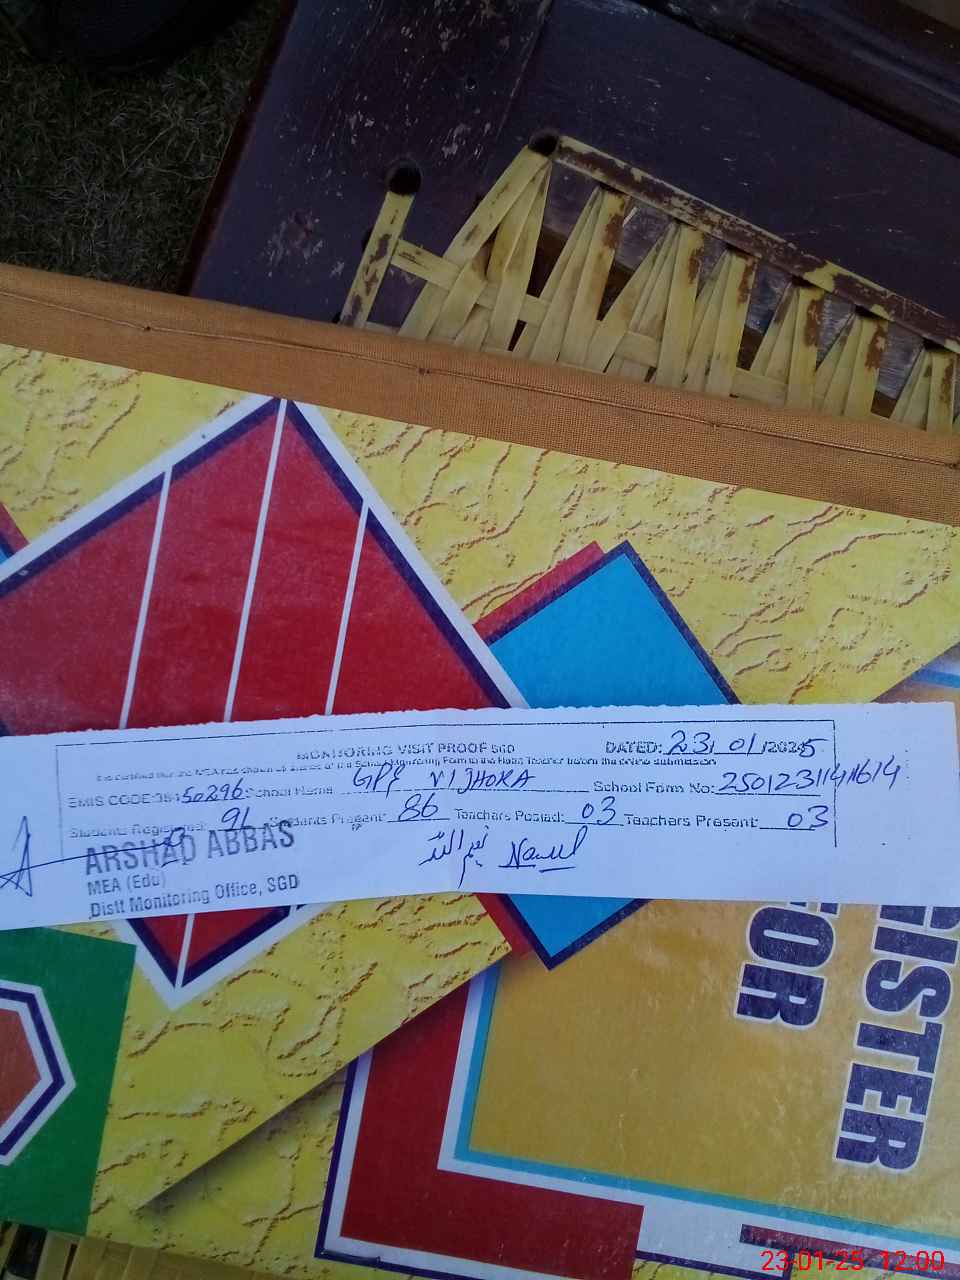 MONITORING VISIT PROOF SGD DATED: 23/01/2025
It is certified that the MEA has shown all entries of the School Monitoring Form to the Head Teacher before the online submission
EMIS CODE:38450296 School Name GPS VIJHOKA School Form No: 250123114111614
Students Registered: 96 Students Present: 86 Teachers Posted: 03 Teachers Present: 03
ARSHAD ABBAS
MEA (Edu)
Distt Monitoring Office, SGD
REGISTER
FOR
23-01-25 12:00